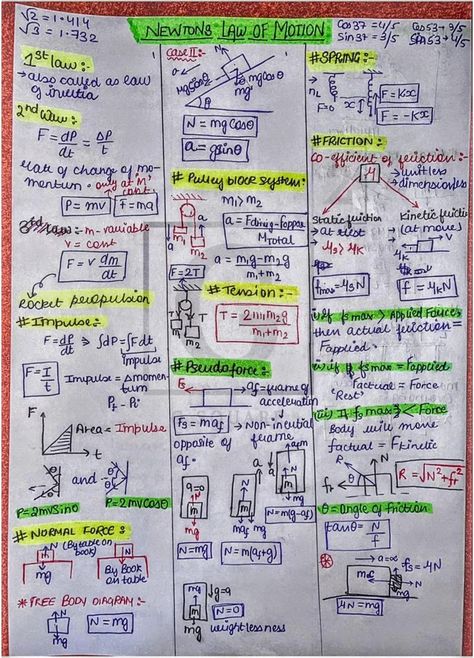 √2 = 1.414
√3 = 1.732
NEWTONS LAW OF MOTION
Cos37 = 4/5
Sin37 = 3/5
Cos53 = 3/5
Sin53 = 4/5
1st law:-
→ also called as law
of inertia
2nd law:-
F = dP/dt = ΔP/t
Rate of change of mo-
mentum → only at m
const.
P = mv
F = ma
3rd law:- m - variable
v = const
F = v dm/dt
Rocket propulsion
# Impulse:-
F = dP/dt ⇒ ∫dP = ∫Fdt
impulse
F = I/t
Impulse = Δmomen-
tum
Pf - Pi
F
Area = Impulse
t
θ
and
θ
P = 2mvsinθ
P = 2mvcosθ
# NORMAL FORCE:
N (By table on
book)
N
mg
By Book
on table
* FREE BODY DIAGRAM:-
N
mg
N = mg
CASE II:
N
a
mgsinθ
mgcosθ
mg
θ
N = mgcosθ
a = gsinθ
# Pulley block system:
m1 > m2
a
m1
m2
a = Fdriving - Foppose / Mtotal
a = m1g - m2g / m1 + m2
F = 2T
# Tension:-
T = 2m1m2g / m1 + m2
# Pseudoforce:
Fs
af = frame of
acceleration
Fs = maf
→ Non-inertial
frame
opposite of
af.
a = 0
N
m
mg
N = mg
a
N
m
maf
mg
N = m(af + g)
a
N
m
mg
N = m(g - g)
ma
m
mg
↓g = a
N = 0
weightlessness
# SPRING:-
nL
F = 0
x
F = Kx
F = -Kx
# FRICTION:-
Co-efficient of friction:-
μ
→ unitless
→ dimensionless
Static friction
→ at rest
→ μs > μK
fmax = μsN
Kinetic friction
(at move)
N
f
fK = μKN
i) if fs max > Applied Force,
then actual friction =
Fapplied.
ii) if fs max = Fapplied
factual = Force
'Rest'
iii) If fs max < Force
Body will move
factual = Fkinetic
R
N
θ
fK
R = √N² + fr²
θ = Angle of friction
tanθ = N/f
*
→ a = ∞
fs = μN
N
mg
μN = mg